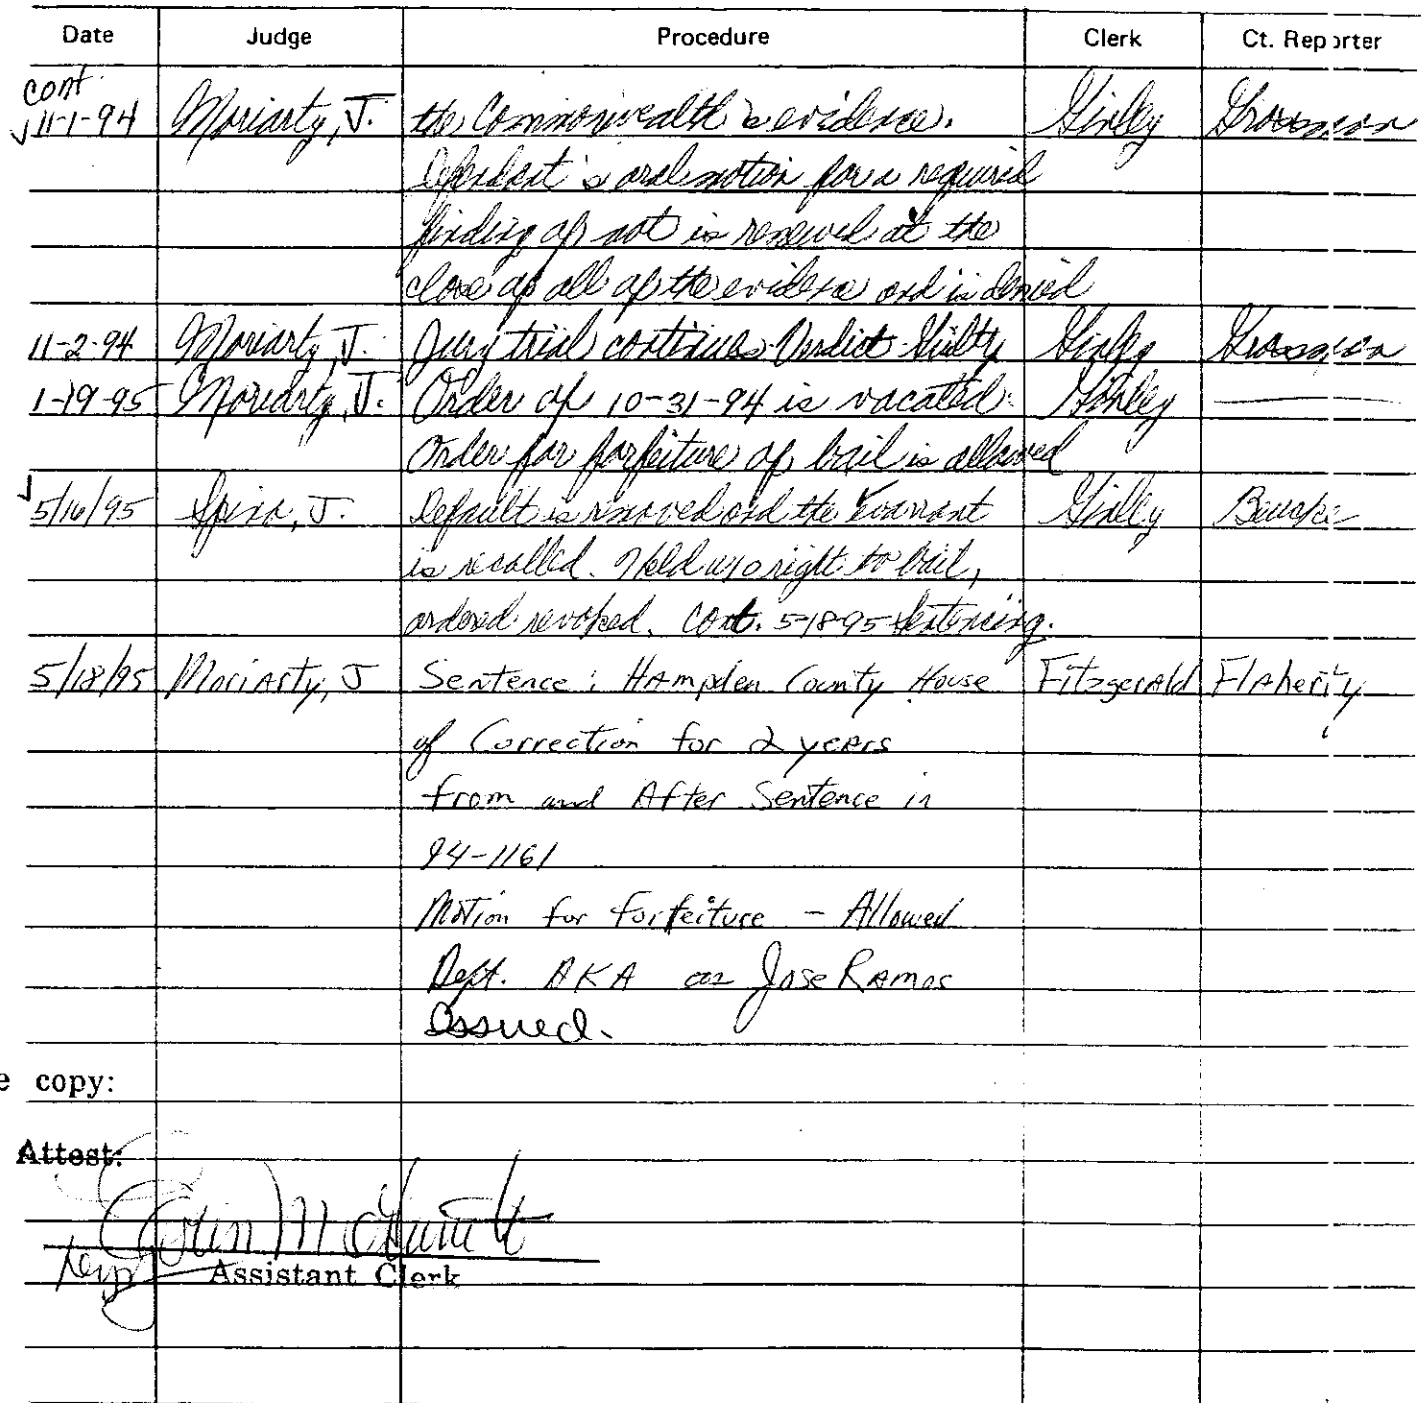 Date Judge Procedure Clerk Ct. Reporter
cont.
11-1-94 Moriarty, J. the Commonwealth's evidence. Ginley Grossman
Defendant's oral motion for a required
finding of not is renewed at the
close of all of the evidence and is denied
11-2-94 Moriarty, J. Jury trial continues. Verdict-Guilty Ginley Grossman
1-19-95 Moriarty, J. Order of 10-31-94 is vacated. Ginley
Order for forfeiture of bail is allowed
5/16/95 Spina, J. Default is removed and the warrant Ginley
is recalled. Held w/o right to bail,
ordered revoked. Cont. 5-18-95 sentencing.
5/18/95 Moriarty, J Sentence: Hampden County House Fitzgerald Flaherty
of Correction for 2 years
from and After Sentence in
94-1161
Motion for forfeiture - Allowed
Deft. AKA as Jose Ramos
Issued.
e copy:
Attest:
Assistant Clerk